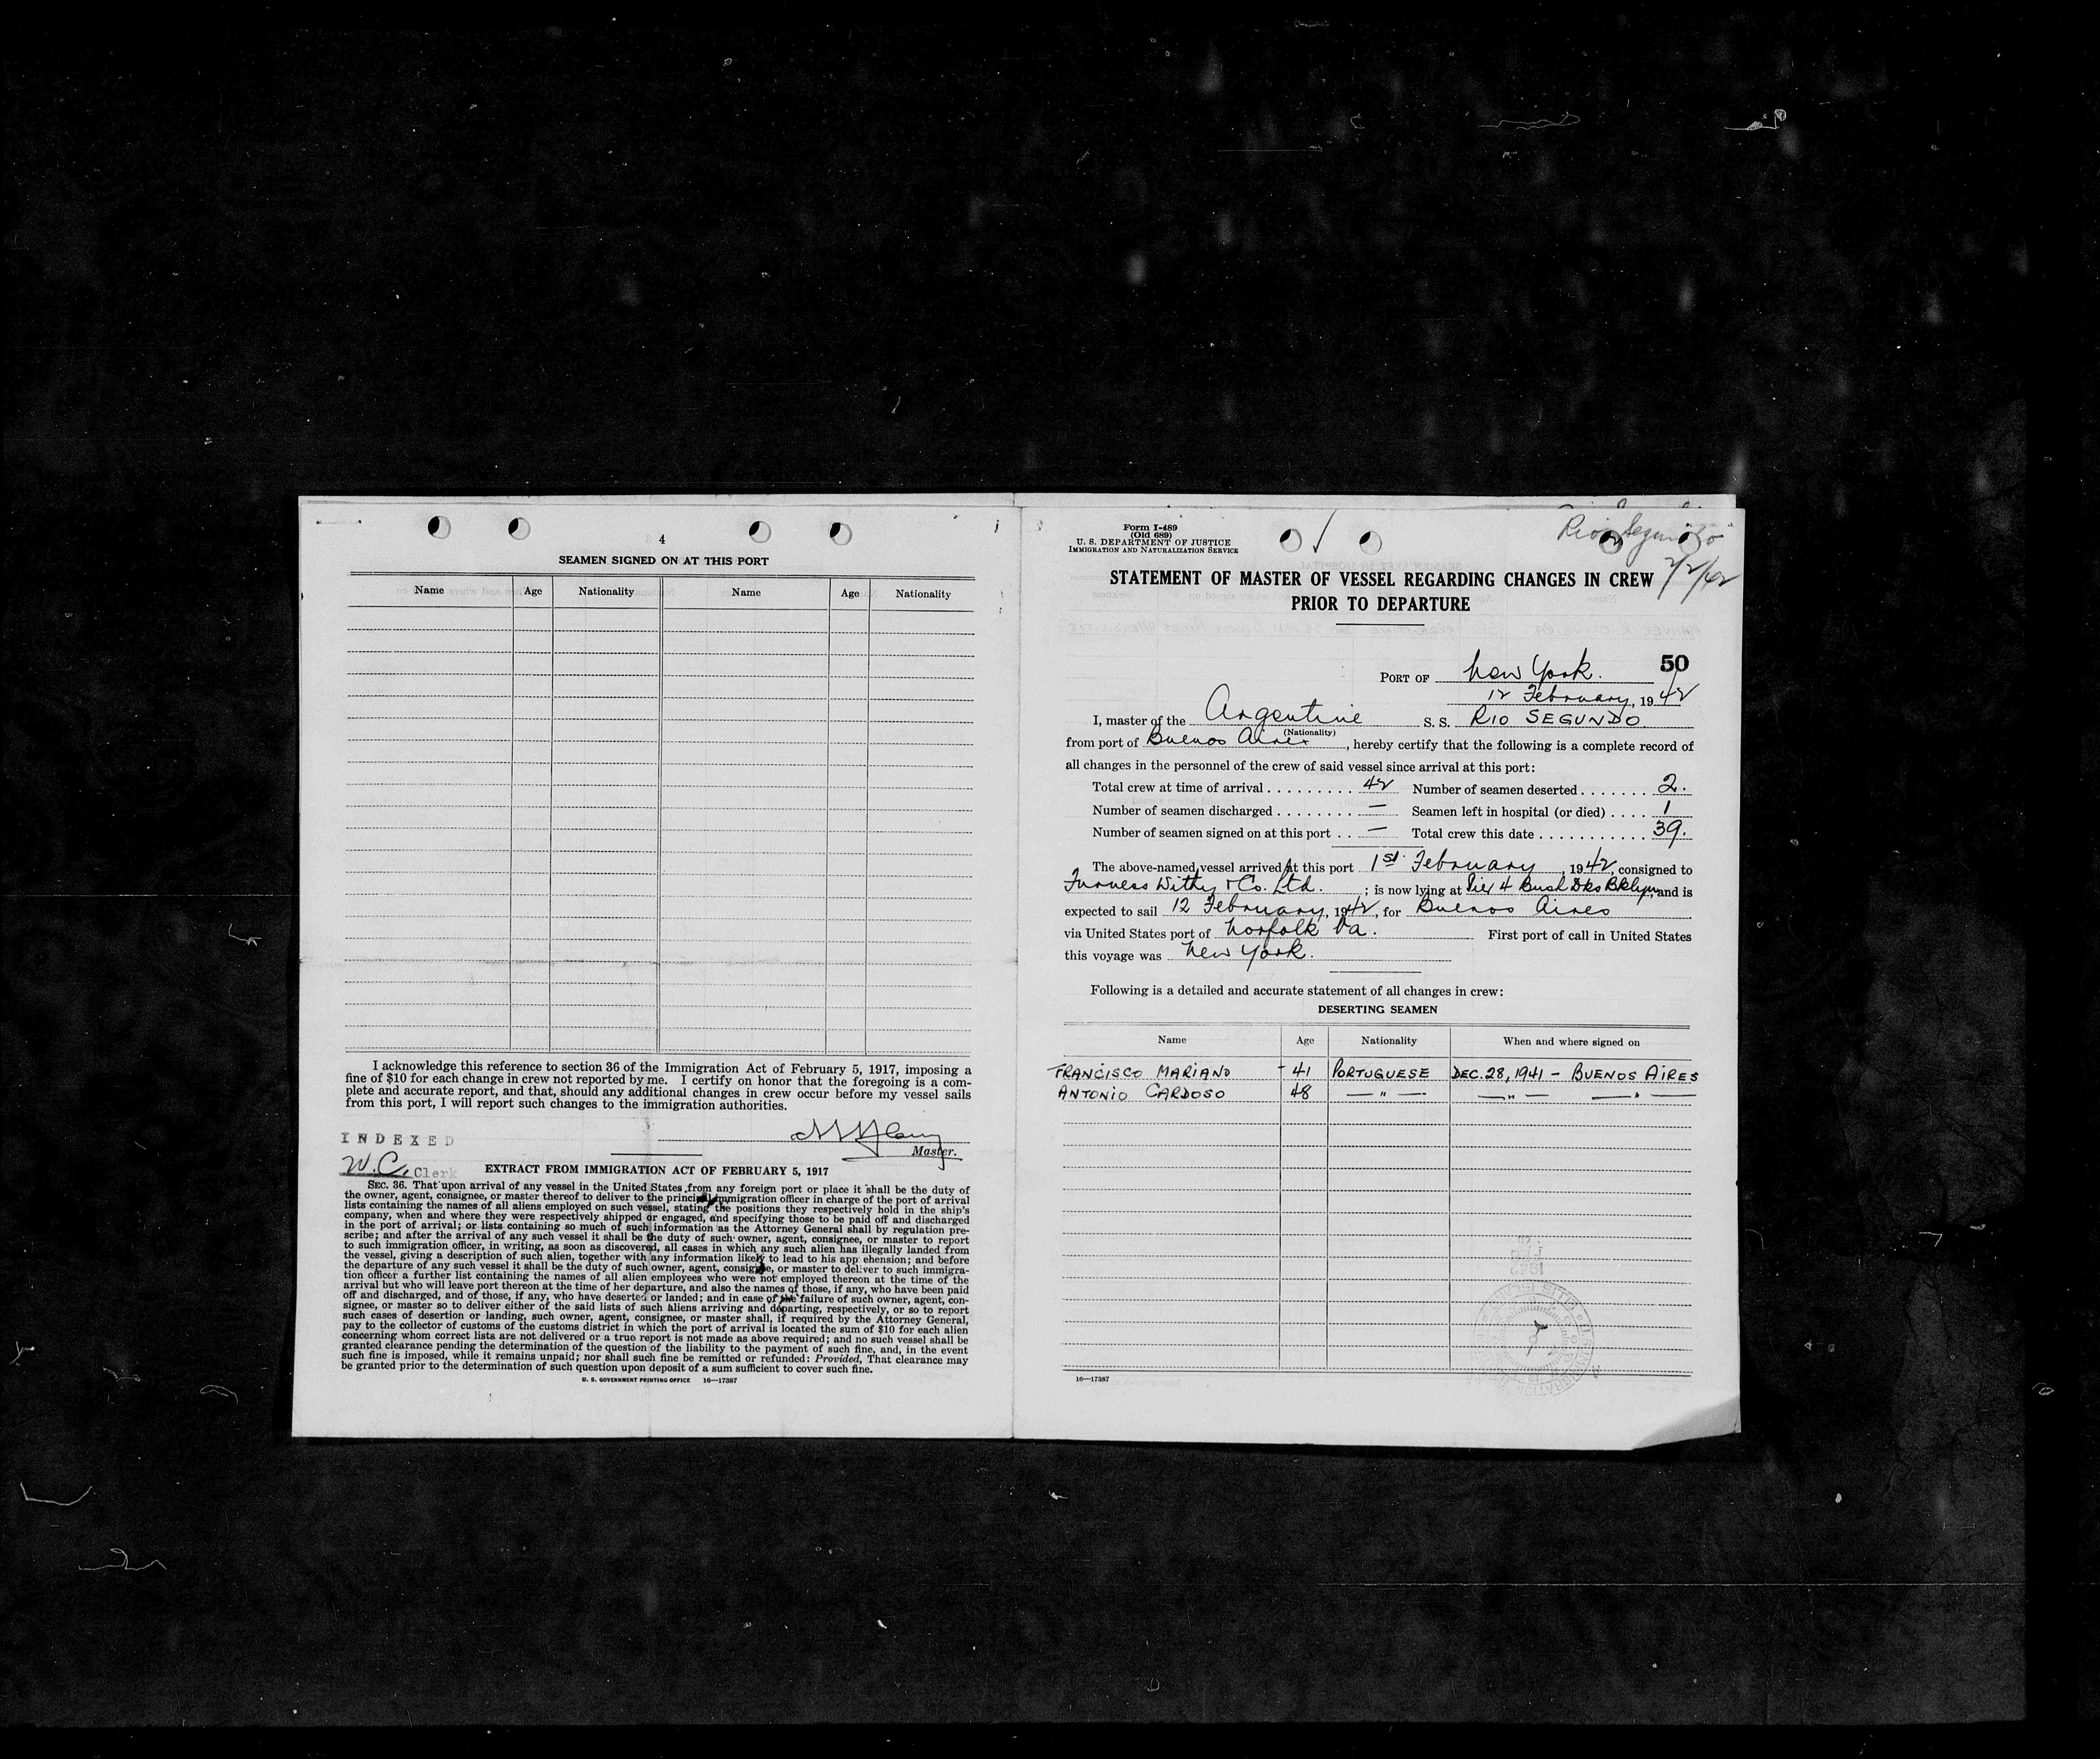 4
SEAMEN SIGNED ON AT THIS PORT
Name Age Nationality Name Age Nationality
I acknowledge this reference to section 36 of the Immigration Act of February 5, 1917, imposing a
fine of $10 for each change in crew not reported by me. I certify on honor that the foregoing is a com-
plete and accurate report, and that, should any additional changes in crew occur before my vessel sails
from this port, I will report such changes to the immigration authorities.
INDEXED
Master.
W.C. Clerk
EXTRACT FROM IMMIGRATION ACT OF FEBRUARY 5, 1917
SEC. 36. That upon arrival of any vessel in the United States from any foreign port or place it shall be the duty of
the owner, agent, consignee, or master thereof to deliver to the principal immigration officer in charge of the port of arrival
lists containing the names of all aliens employed on such vessel, stating the positions they respectively hold in the ship's
company, when and where they were respectively shipped or engaged, and specifying those to be paid off and discharged
in the port of arrival; or lists containing so much of such information as the Attorney General shall by regulation pre-
scribe; and after the arrival of any such vessel it shall be the duty of such owner, agent, consignee, or master to report
to such immigration officer, in writing, as soon as discovered, all cases in which any such alien has illegally landed from
the vessel, giving a description of such alien, together with any information likely to lead to his app ehension; and before
the departure of any such vessel it shall be the duty of such owner, agent, consignee, or master to deliver to such immigra-
tion officer a further list containing the names of all alien employees who were not employed thereon at the time of the
arrival but who will leave port thereon at the time of her departure, and also the names of those, if any, who have been paid
off and discharged, and of those, if any, who have deserted or landed; and in case of the failure of such owner, agent, con-
signee, or master so to deliver either of the said lists of such aliens arriving and departing, respectively, or so to report
such cases of desertion or landing, such owner, agent, consignee, or master shall, if required by the Attorney General,
pay to the collector of customs of the customs district in which the port of arrival is located the sum of $10 for each alien
concerning whom correct lists are not delivered or a true report is not made as above required; and no such vessel shall be
granted clearance pending the determination of the question of the liability to the payment of such fine, and, in the event
such fine is imposed, while it remains unpaid; nor shall such fine be remitted or refunded: Provided, That clearance may
be granted prior to the determination of such question upon deposit of a sum sufficient to cover such fine.
U. S. GOVERNMENT PRINTING OFFICE 16—17387
Form I-489
(Old 689)
U. S. DEPARTMENT OF JUSTICE
IMMIGRATION AND NATURALIZATION SERVICE
Rio Segundo
2/2/42
STATEMENT OF MASTER OF VESSEL REGARDING CHANGES IN CREW
PRIOR TO DEPARTURE
50
PORT OF New York.
12 February, 1942
I, master of the Argentine S. S. RIO SEGUNDO
(Nationality)
from port of Buenos Aires, hereby certify that the following is a complete record of
all changes in the personnel of the crew of said vessel since arrival at this port:
Total crew at time of arrival . . . . . . . . . 42 Number of seamen deserted . . . . . . . 2.
Number of seamen discharged . . . . . . . . — Seamen left in hospital (or died) . . . . 1
Number of seamen signed on at this port . . — Total crew this date . . . . . . . . . . . 39.
The above-named vessel arrived at this port 1st. February, 1942, consigned to
Furness Withy & Co. Ltd. ; is now lying at Pier 4 Bush Dks Bklyn, and is
expected to sail 12 February, 1942, for Buenos Aires
via United States port of Norfolk Va. First port of call in United States
this voyage was New York.
Following is a detailed and accurate statement of all changes in crew:
DESERTING SEAMEN
Name Age Nationality When and where signed on
FRANCISCO MARIANO 41 PORTUGUESE DEC. 28, 1941 - BUENOS AIRES
ANTONIO CARDOSO 48 — " — — " — — " —
16—17387